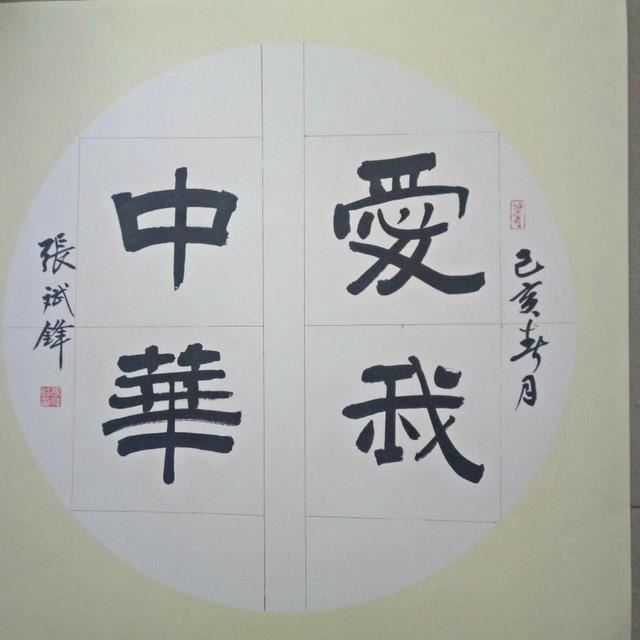 愛我
中華
己亥春月
張斌鋒